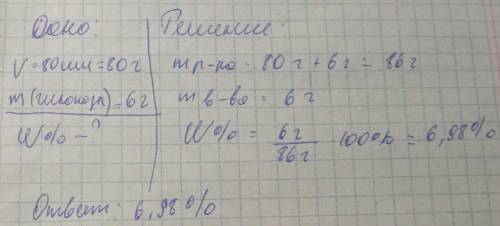 Дано:
V = 80 мл = 80 г
m (глюкозы) = 6 г
W% - ?
Решение:
m р-ра = 80 г + 6 г = 86 г
m в-ва = 6 г
W% = 6 г / 86 г · 100% = 6,98%
Ответ: 6,98%